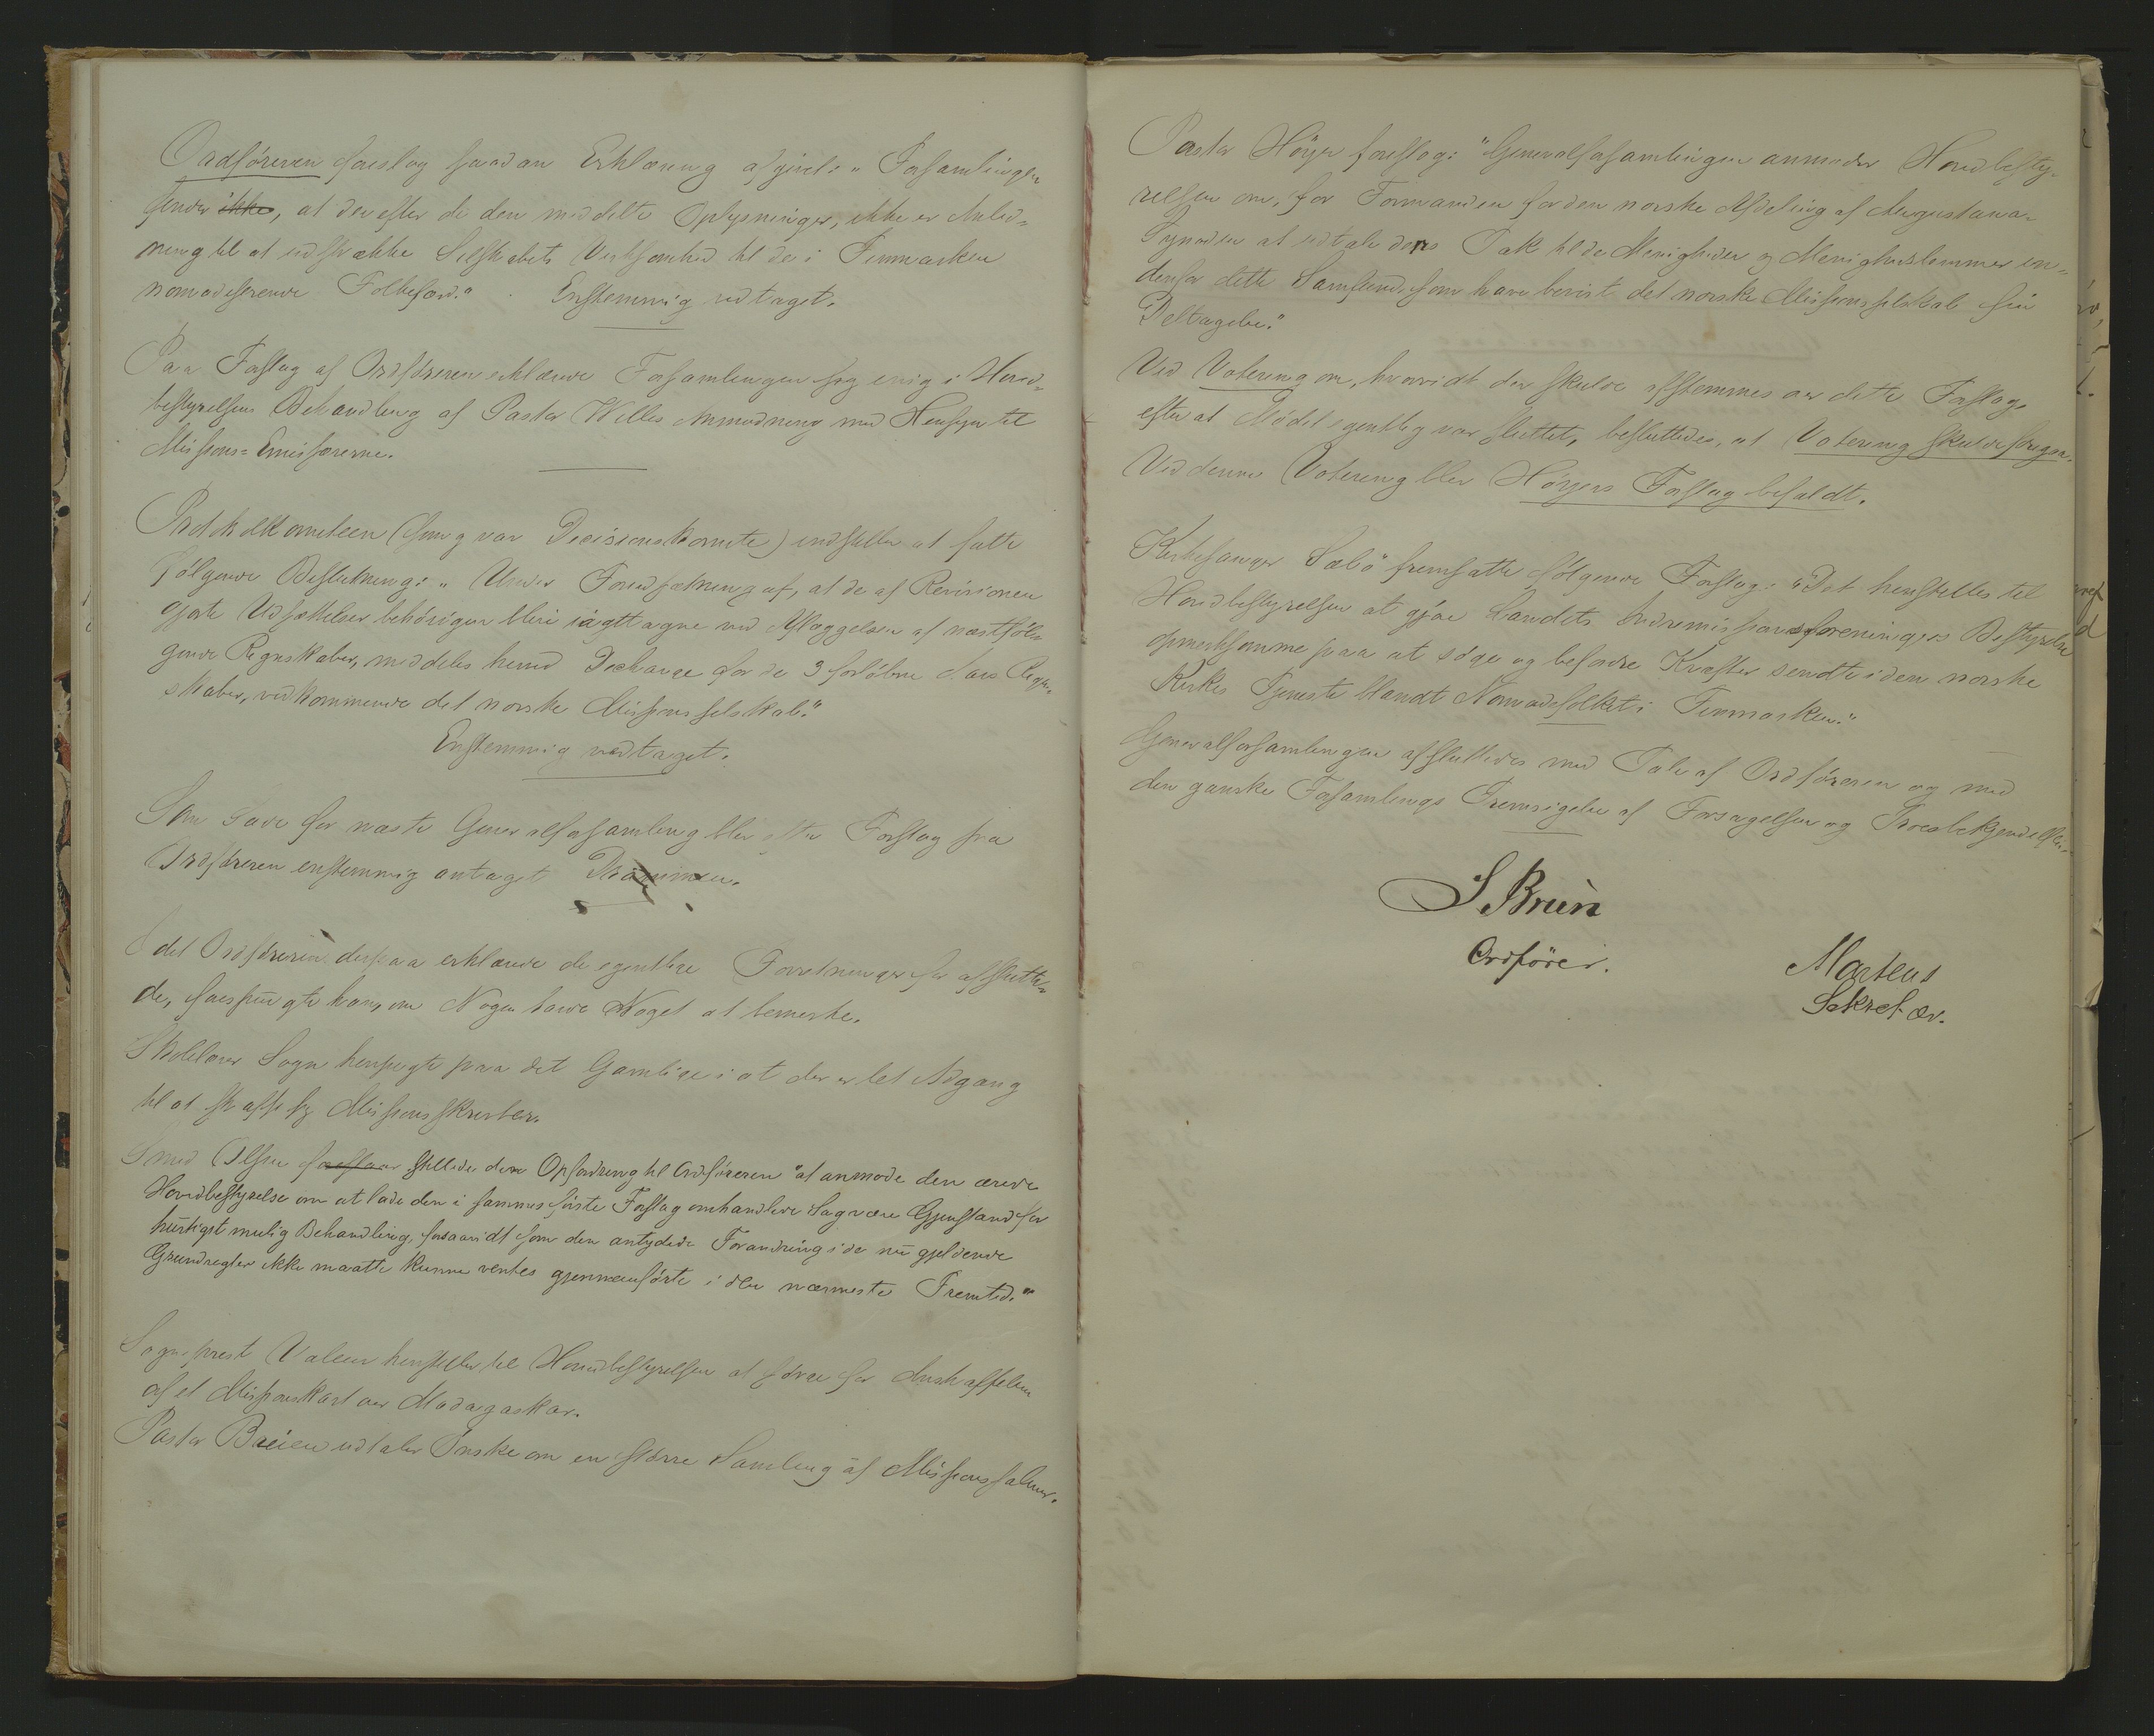 Ordföreren foreslog saadan Erklæring afgivet: "Forsamlingen
finder ikke, at der efter de den meddelte Oplysninger, ikke er Anled-
ning til at udstrække Selskabets Virksomhed til de i Finmarken
nomadiserende Folkefærd." Enstemmig vedtaget.
Paa Forslag af Ordföreren erklærede Forsamlingen sig enig i Hoved-
bestyrelsens Behandling af Pastor Willes Anmodning med Hensyn til
Missions-Emissærerne.
Protokolkomiteen (som og var Decisionskomite) indstiller at fatte
følgende Beslutning: "Under Forudsætning af, at de af Revisionen
gjorte Udsættelser behörigen blive iagttagne ved Aflæggelsen af næstföl-
gende Regnskaber, meddeles herved Decharge for de 3 forlöbne Aars Regn-
skaber, vedkommende det norske Missionsselskab."
Enstemmig vedtaget.
Som Sæde for næste Generalforsamling blev efter Forslag fra
Ordföreren enstemmig antaget Drammen.
Idet Ordföreren derpaa erklærede de egentlige Forretninger for afslutte-
de, forespurgte han, om Nogen havde Noget at bemerke.
Skolelærer Sogn henpegte paa det Gavnlige i at der er let Adgang
til at skaffe sig Missionsskrifter.
Smed Olsen foreslaar stillede den Opfordring til Ordföreren "at anmode den ærede
Hovedbestyrelse om at lade den i sammes förste Forslag omhandlede Sag være Gjenstand for
hurtigst mulig Behandling, forsaavidt som den antydede Forandring i de nu gjeldende
Grundregler ikke maatte kunne ventes gjennemförte i den nærmeste Fremtid."
Sogneprest Valeur henstiller til Hovedbestyrelsen at sörge for Anskaffelsen
af et Missionskart over Madagaskar.
Pastor Breien udtaler Önske om en större Samling af Missionssalmer.
Pastor Höyer foreslog: "Generalforsamlingen anmoder Hovedbesty-
relsen om, for Formanden for den norske Afdeling af Augustana-
Synoden at udtale dens Tak til de Menigheder og Menighedslemmer in-
denfor dette Samfund, som have bevist det norske Missionsselskab sin
Deltagelse."
Ved Votering om, hvorvidt der skulde afstemmes over dette Forslag,
efter at Mödet egentlig var sluttet, besluttedes, at Votering skulde foregaa.
Ved denne Votering blev Höyers Forslag befaldt.
Kirkesanger Sæbö fremsatte fölgende Forslag: "Det henstilles til
Hovedbestyrelsen at gjöre Landets Indremissionsforeningers Bestyrelse
opmerksomme paa at söge og befordre Kræfter sendte i den norske
Kirkes Tjeneste blandt Nomadefolket i Finmarken."
Generalforsamlingen afsluttedes med Tale af Ordföreren og med
den ganske Forsamlings Fremsigelse af Forsagelsen og Troesbekjendelsen.
S. Bruun
Ordförer.
Martens
Sekretær.